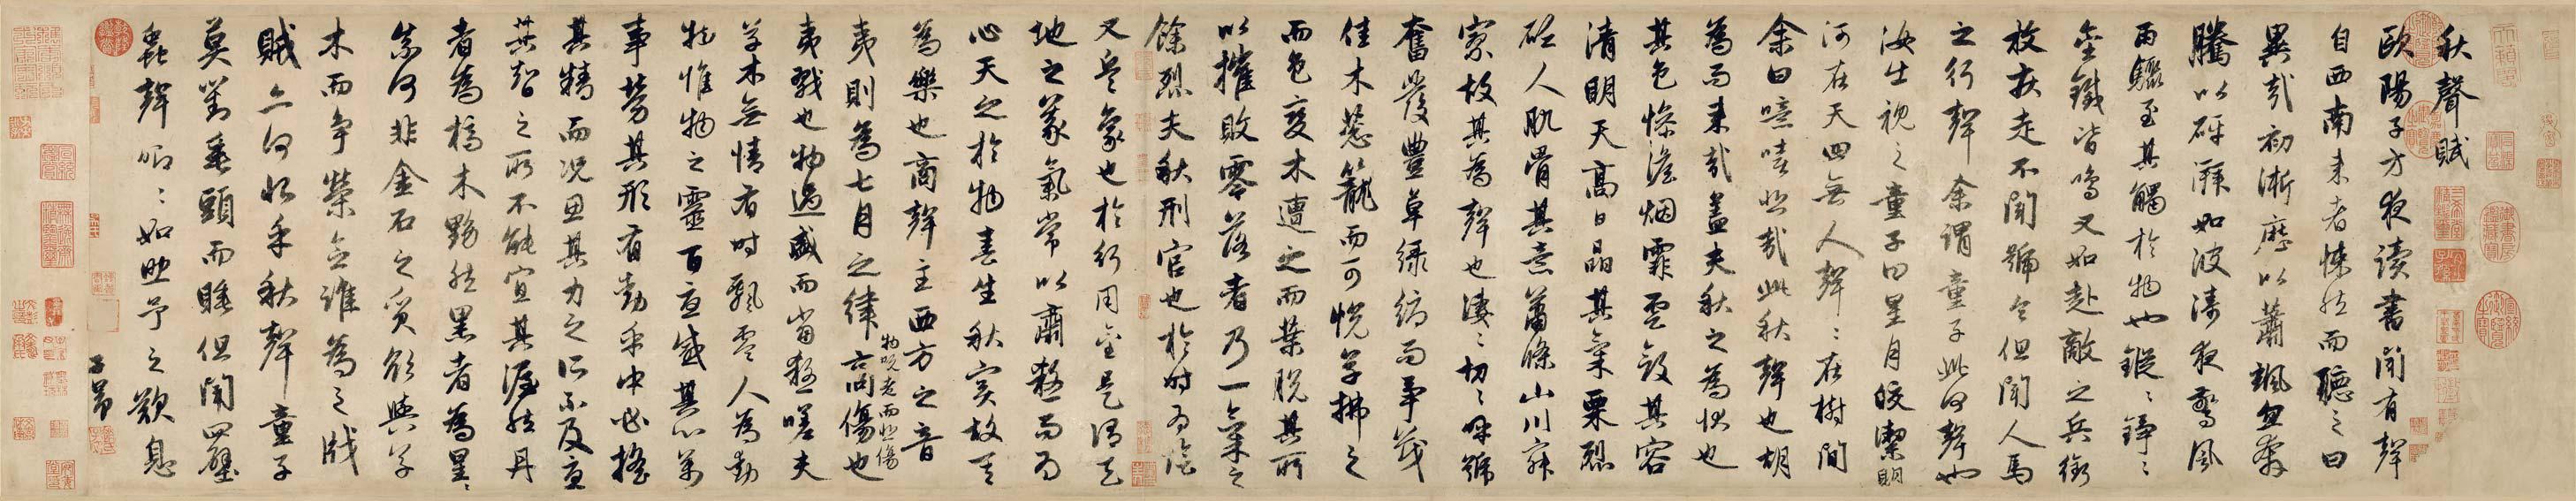 秋聲賦
歐陽子方夜讀書聞有聲
自西南来者悚然而聽之曰
異哉初淅瀝以蕭颯忽奔
騰以砰湃如波濤夜驚風
雨驟至其觸於物也鏦〻錚〻
金鐵皆鳴又如赴敵之兵銜
枚疾走不聞號令但聞人馬
之行聲余謂童子此何聲也
汝出視之童子曰星月皎潔明
河在天四無人聲〻在樹間
余曰噫嘻悲哉此秋聲也胡
為而来哉蓋夫秋之為狀也
其色慘澹烟霏雲斂其容
清明天高日晶其氣栗烈
砭人肌骨其意蕭條山川寂
寥故其為聲也淒〻切〻呼號
奮發豐草綠縟而爭茂
佳木蔥籠而可悅草拂之
而色變木遭之而葉脫其所
以摧敗零落者乃一氣之
餘烈夫秋刑官也於時為陰
又兵象也於行用金是謂天
地之義氣常以肅殺而為
心天之於物春生秋實故其
為樂也商聲主西方之音
夷則為七月之律商傷也
物既老而悲傷
夷戮也物過盛而當殺嗟夫
草木無情有時飄零人為動
物惟物之靈百憂感其心萬
事勞其形有動乎中必搖
其精而況思其力之所不及憂
其智之所不能宜其渥然丹
者為槁木黟然黑者為星〻
奈何非金石之質欲與草
木而爭榮念誰為之戕
賊亦何恨乎秋聲童子
莫對垂頭而睡但聞四壁
蟲聲唧〻如助予之歎息
子昂